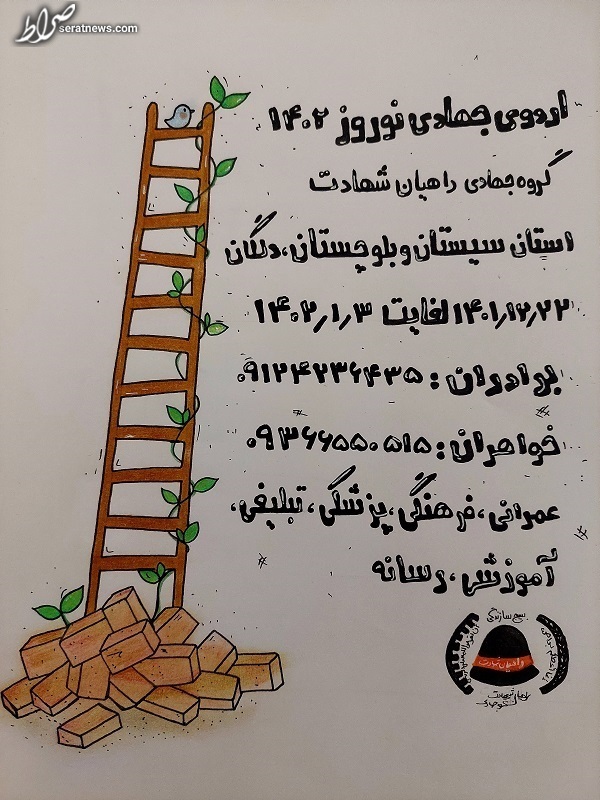 صراط
seratnews.com
اردوی جهادی نوروز ۱۴۰۲
گروه جهادی راهیان شهادت
استان سیستان و بلوچستان، دلگان
۱۴۰۱/۱۲/۲۲ لغایت ۱۴۰۲/۱/۳
برادران: ۰۹۱۲۴۲۳۶۴۳۵
خواهران: ۰۹۳۶۶۵۵۰۵۱۵
عمرانی، فرهنگی، پزشکی، تبلیغی،
آموزش، رسانه
بسیج سازندگی
راهیان شهادت